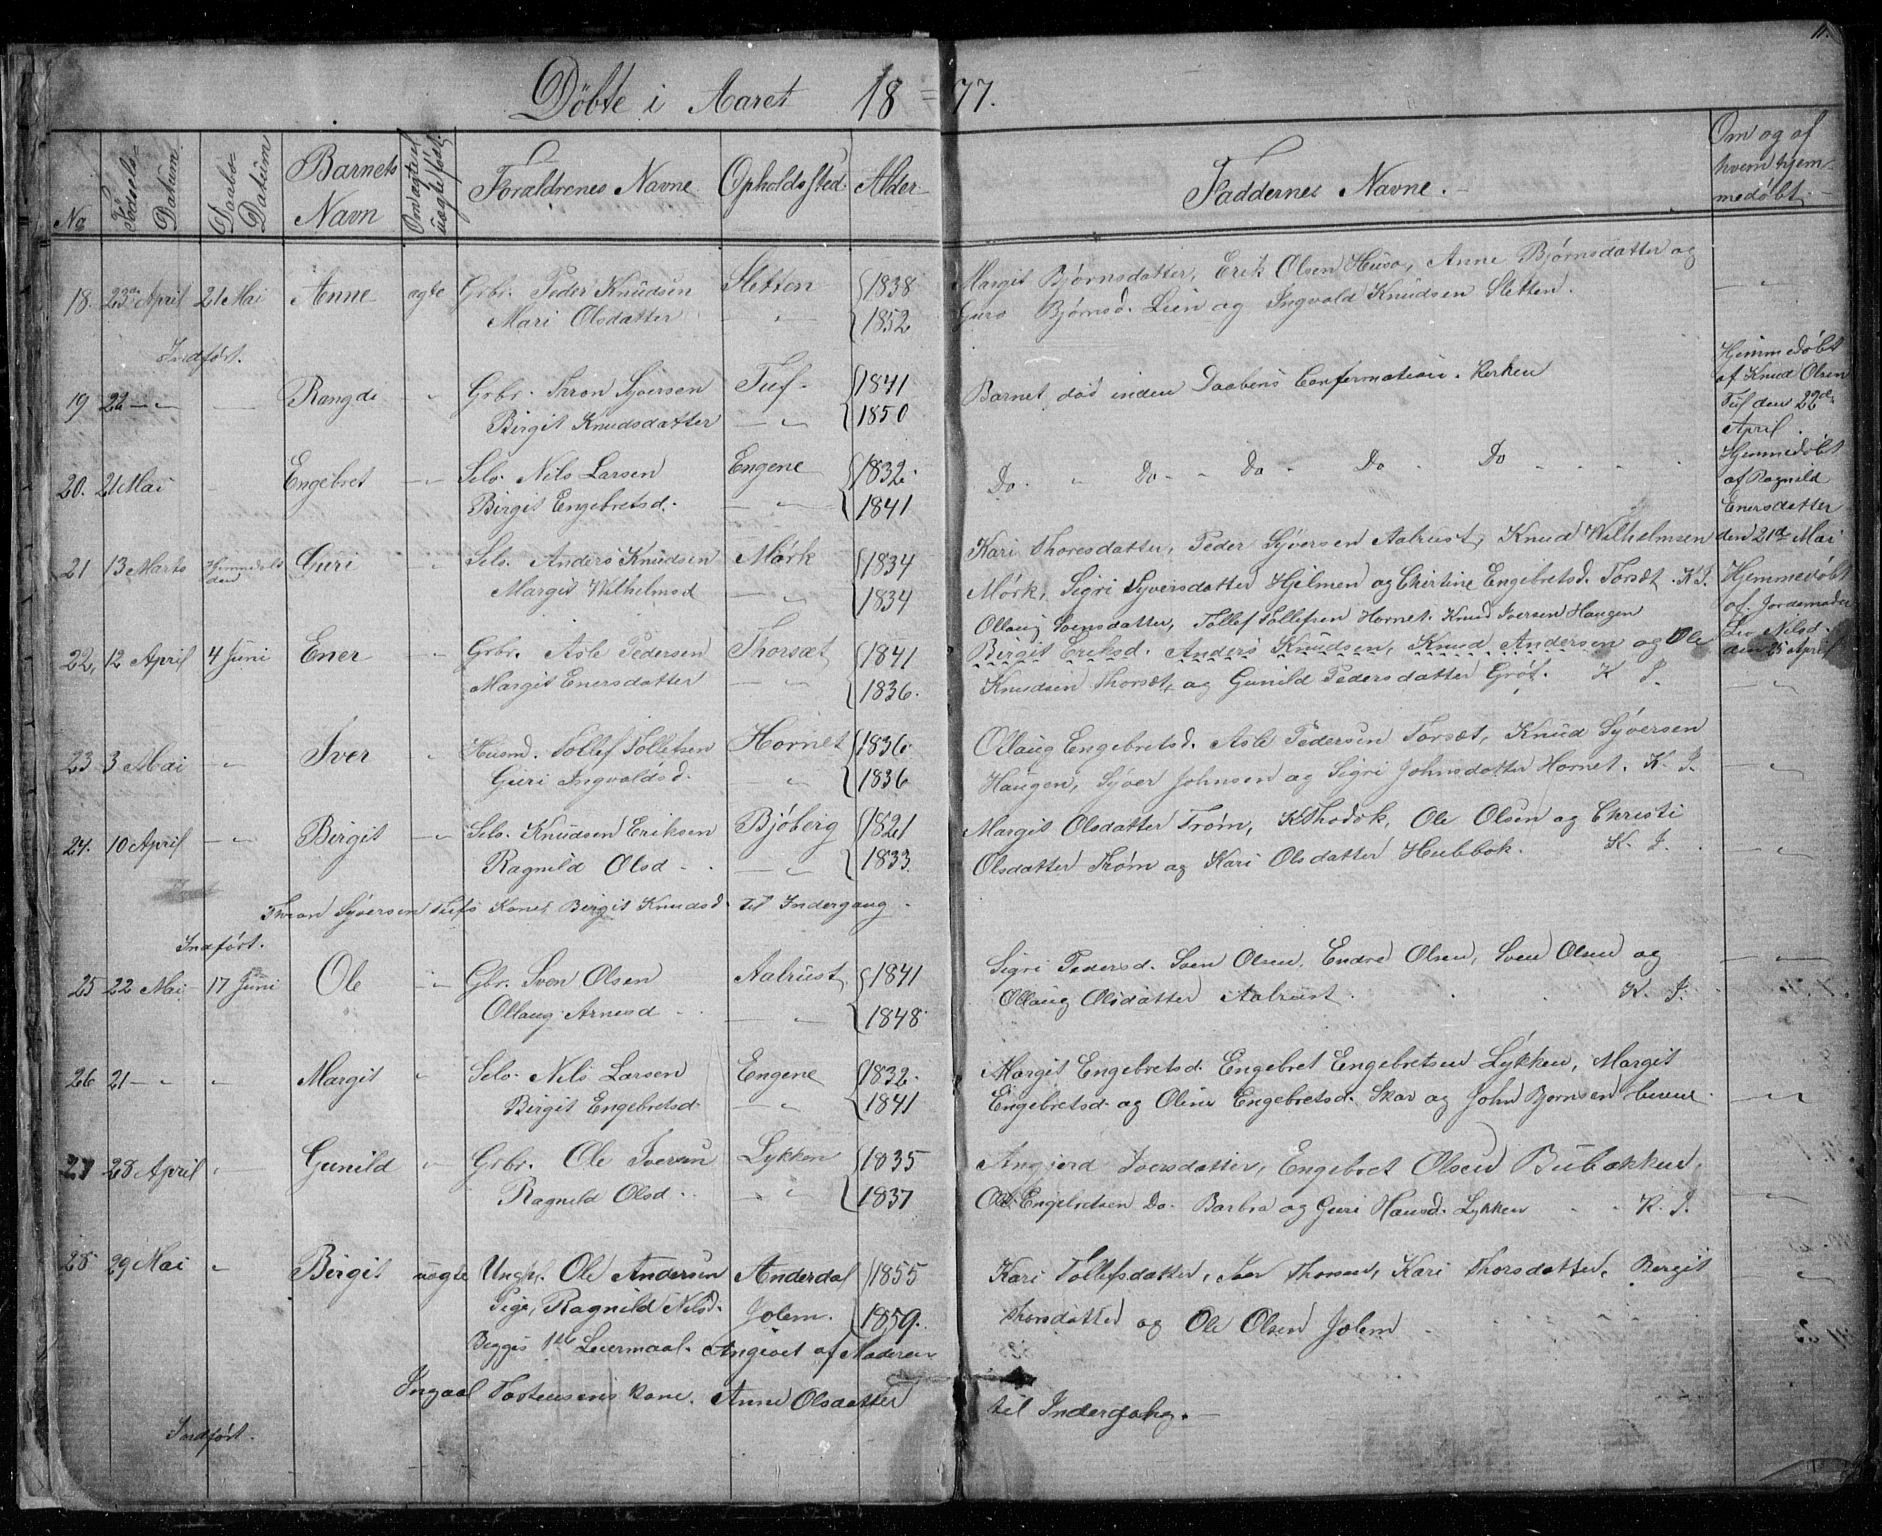 11.
Döbte i Aaret 18=77.
No
Födsels-Datum
Daabs-Datum
Barnets Navn
Om ægte el. uægte født.
Foraldrenes Navne
Opholdssted.
Alder
Faddernes Navne.
Om og af hvem hjemmedøbt.
18. 23de April 21 Mai Anne ægte Grbr. Peder Knudsen Sletten 1838 Margit Bjørnsdatter, Erik Olsen Huso, Anne Bjørnsdatter og
Mari Olsdatter 1852 Guro Bjørnsd. Lien og Ingvald Knudsen Sletten.
Indført.
19 22 Rangdi Grbr. Thron Syversen Tuf. 1841 Barnet død inden Daabens Confermation i Kirken Hjemmedøbt af Knud Olsen Tuf den 22de April.
Birgit Knudsdatter 1850
20. 21 Mai Engebret Selv. Nils Larsen Engene 1832. Do. Do Do Do Do Hjemmedøbt af Ragnild Enersdatter den 21de Mai
Birgit Engebretsd. 1841
21 13 Marts Guri Selv. Anders Knudsen Mörk 1834 Kari Thoresdatter, Peder Syversen Aalrust, Knud Wilhelmsen
Margit Wilhelmsd 1834 Mørk, Sigri Syversdatter Hjelmen og Christine Engebretsd. Torsæt. K I. Hjemmedøbt af Jordemoder Liv Nilsd. den 25 April
Ollaug Svensdatter, Tollef Tollefsen Hornet. Knud Iversen Haugen
22, 12 April 4 Juni Ener Grbr. Asle Pedersen Thorsæt 1841 Birgit Eriksd. Anders Knudsen, Knud Andersen og Ole
Margit Enersdatter 1836. Knudsen Thorsæt, og Gunild Pedersdatter Grøt. K I.
23 3 Mai Iver Husmd. Tollef Tollefsen Hornet 1836 Ollaug Engebretsd. Asle Pedersen Torsæt, Knud Syversen
Guri Ingvaldsd. 1836 Haugen, Syver Johnsen og Sigri Johnsdatter Hornet. K. I.
24. 10 April Birgit Selv. Knudsen Eriksen Bjöberg 1821 Margit Olsdatter Trøm, Ole Olsen og Christi
Ragnild Olsd 1833 Olsdatter Trøm og Kari Olsdatter Hubbok. K. I.
Thron Syversen Tufs Kone, Birgit Knudsd. til Indergang.
Indført.
25 22 Mai 17 Juni Ole Gbr. Sven Olsen Aalrust 1841 Sigri Pedersd. Sven Olsen, Endre Olsen, Sven Olsen og
Ollaug Arnesd 1848 Ollaug Olsdatter Aalrust. K. I.
26 21 Margit Selv. Nils Larsen Engene 1832. Margit Engebretsd. Engebret Engebretsen Lykken, Margit
Birgit Engebretsd 1841 Engebretsd og Oline Engebretsd. Skar og John Bjørnsen
27 28 April Gunild Grbr. Ole Iversen Lykken 1835 Angjerd Iversdatter, Engebret Olsen Bubakken,
Ragnild Olsd. 1837 Ole Engebretsen Do. Barbro og Guri Hansd. Lykken K. I.
28 29 Mai Birgit uægte Ungk. Ole Andersen Anderdal 1855 Kari Tollefsdatter, Iver Thorsen, Kari Thorsdatter, Bergit
Pige, Ragnild Nilsd. Jolem. 1859. Thorsdatter og Ole Olsen Jolem
Begges 1ste Leiermaal. Angivet af Moderen
Ingaal Tostensens kone. Anne Olsdatter til Indergang.
Indført.